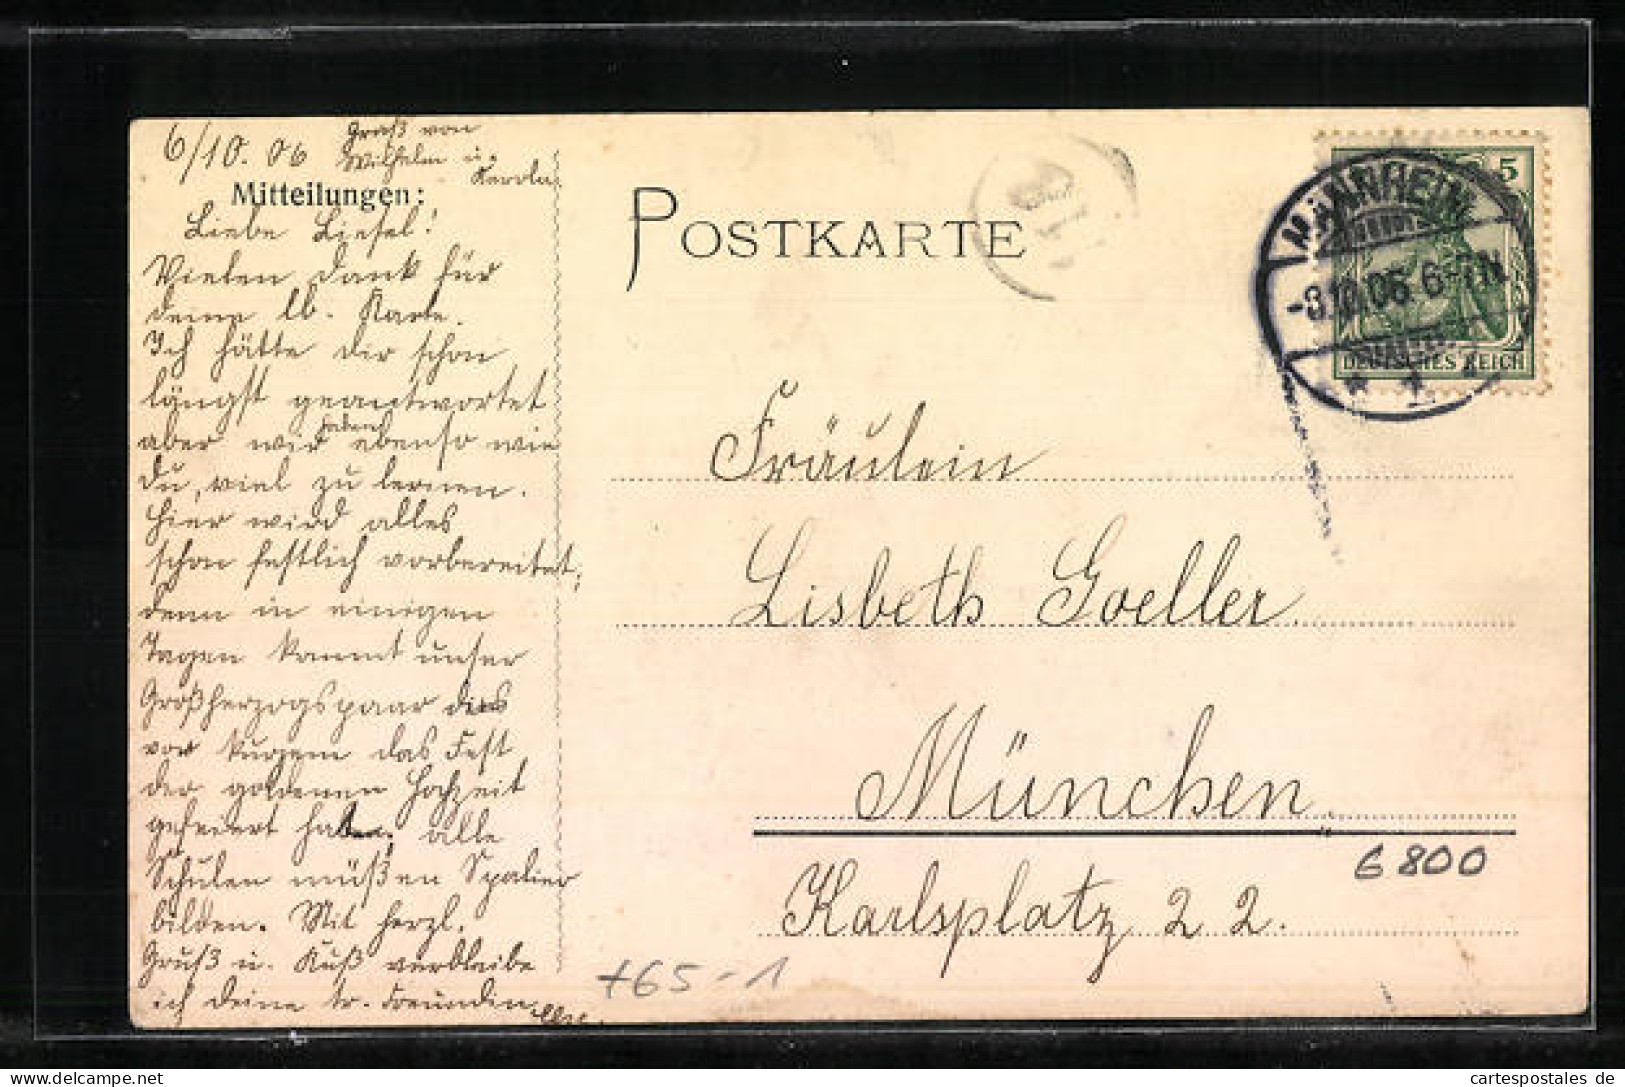 6/10. 06
Gruß von
Wilhelm u.
Mitteilungen:
Liebe Liesel!
Vielen Dank für
deine lb. Karte.
Ich hätte dir schon
längst geantwortet
aber wir haben ebenso wie
du, viel zu lernen.
Hier wird alles
schon festlich vorbereitet,
denn in einigen
Tagen kommt unser
Großherzogspaar
vor kurzem das Fest
der goldenen Hochzeit
gefeiert haben; alle
Schulen müßen Spalier
bilden. Mit herzl.
Gruß u. Kuß verbleibe
ich deine tr. Freundin
POSTKARTE
MANNHEIM
5
DEUTSCHES REICH
Fräulein
Lisbeth Goeller.
München
Karlsplatz 22.
6800
+65-1
Picture Code: cartespostales de